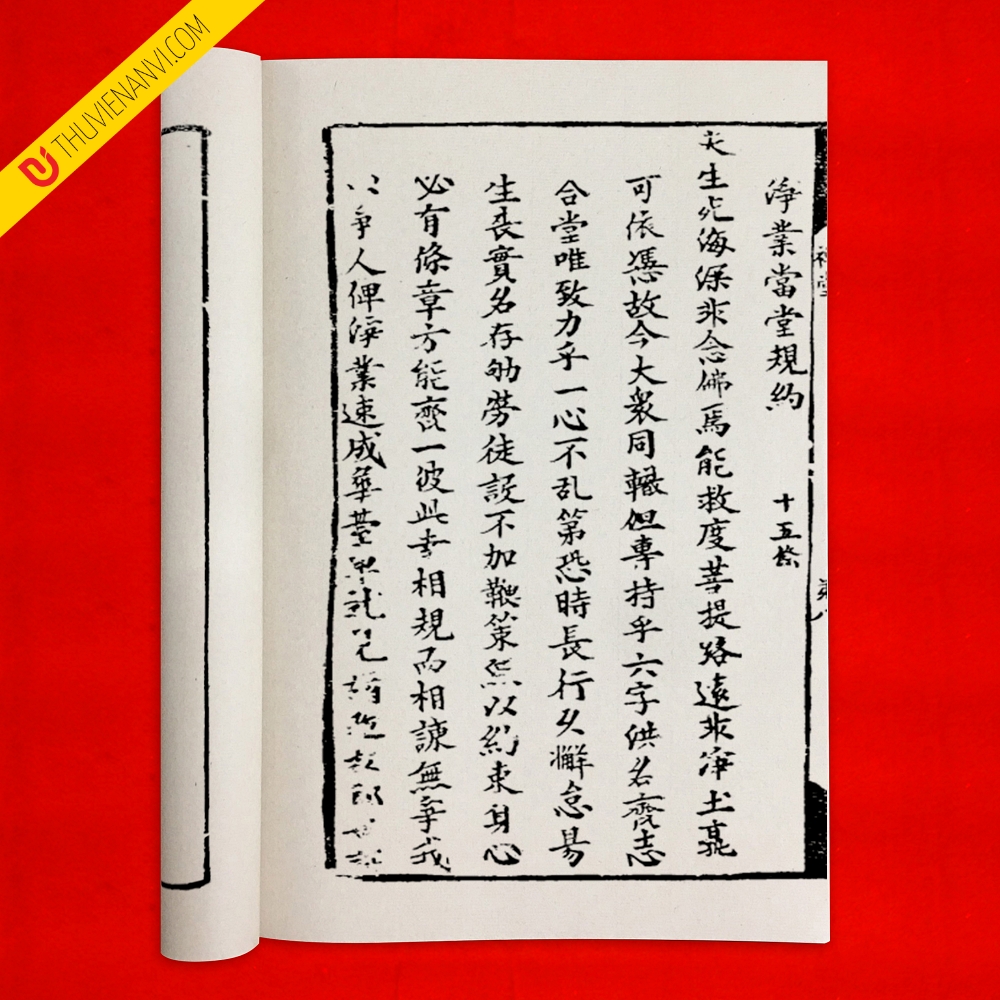 THUVIENANVI.COM
淨業當堂規約 十五條
夫生死海深非念佛焉能救度菩提路遠非淨土孰
可依憑故今大衆同轍但專持乎六字洪名齊志
合堂唯致力乎一心不乱第恐時長行久懈怠易
生喪實名存劬勞徒設不加鞭策無以約束身心
必有條章方能齊一彼此幸相規而相諫無爭我
以爭人俾淨業速成華臺